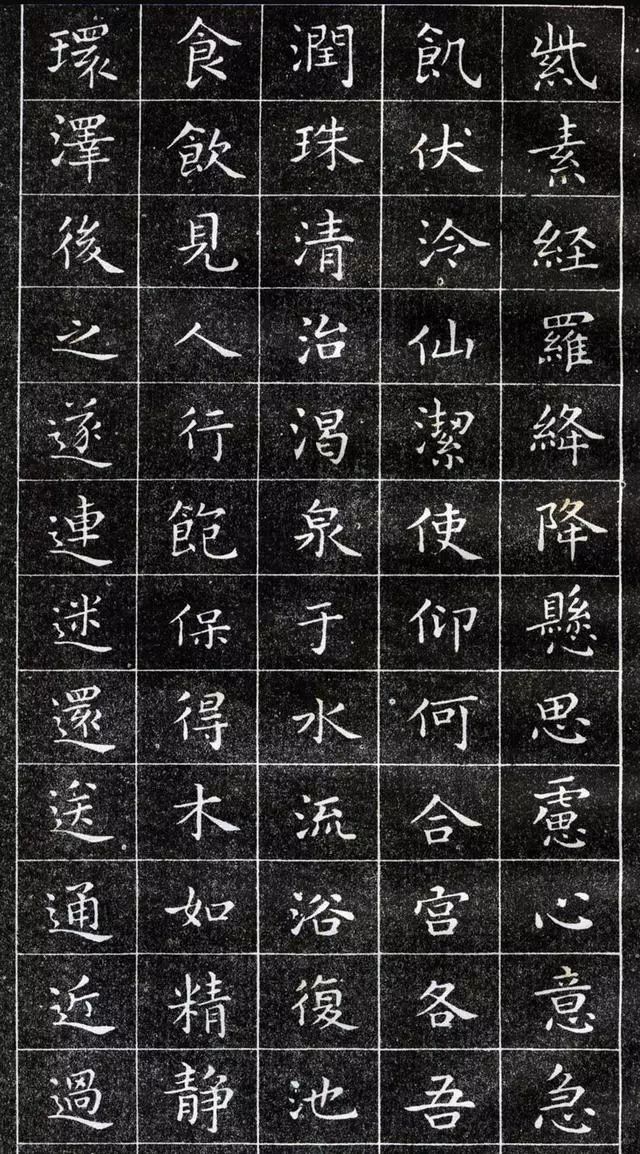 紫素經羅絳降懸思慮心意急
飢伏泠仙潔使仰何合宮各吾
潤珠清治渴泉于水流浴復池
食飲見人行飽保得木如精靜
環澤後之遂連迷還送通近過